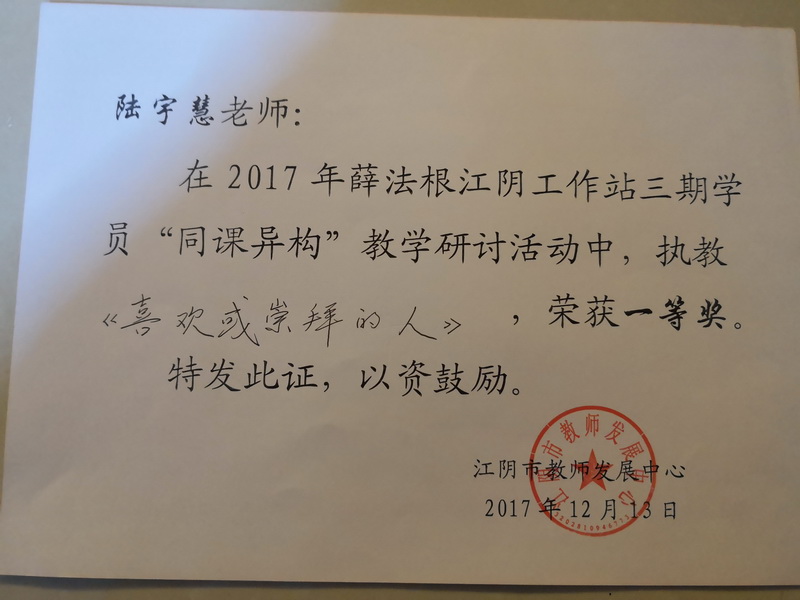 陆宇慧老师：
在2017年薛法根江阴工作站三期学
员“同课异构”教学研讨活动中，执教
《喜欢或崇拜的人》，荣获一等奖。
特发此证，以资鼓励。
江阴市教师发展中心
2017年12月13日
江阴市教师发展中心